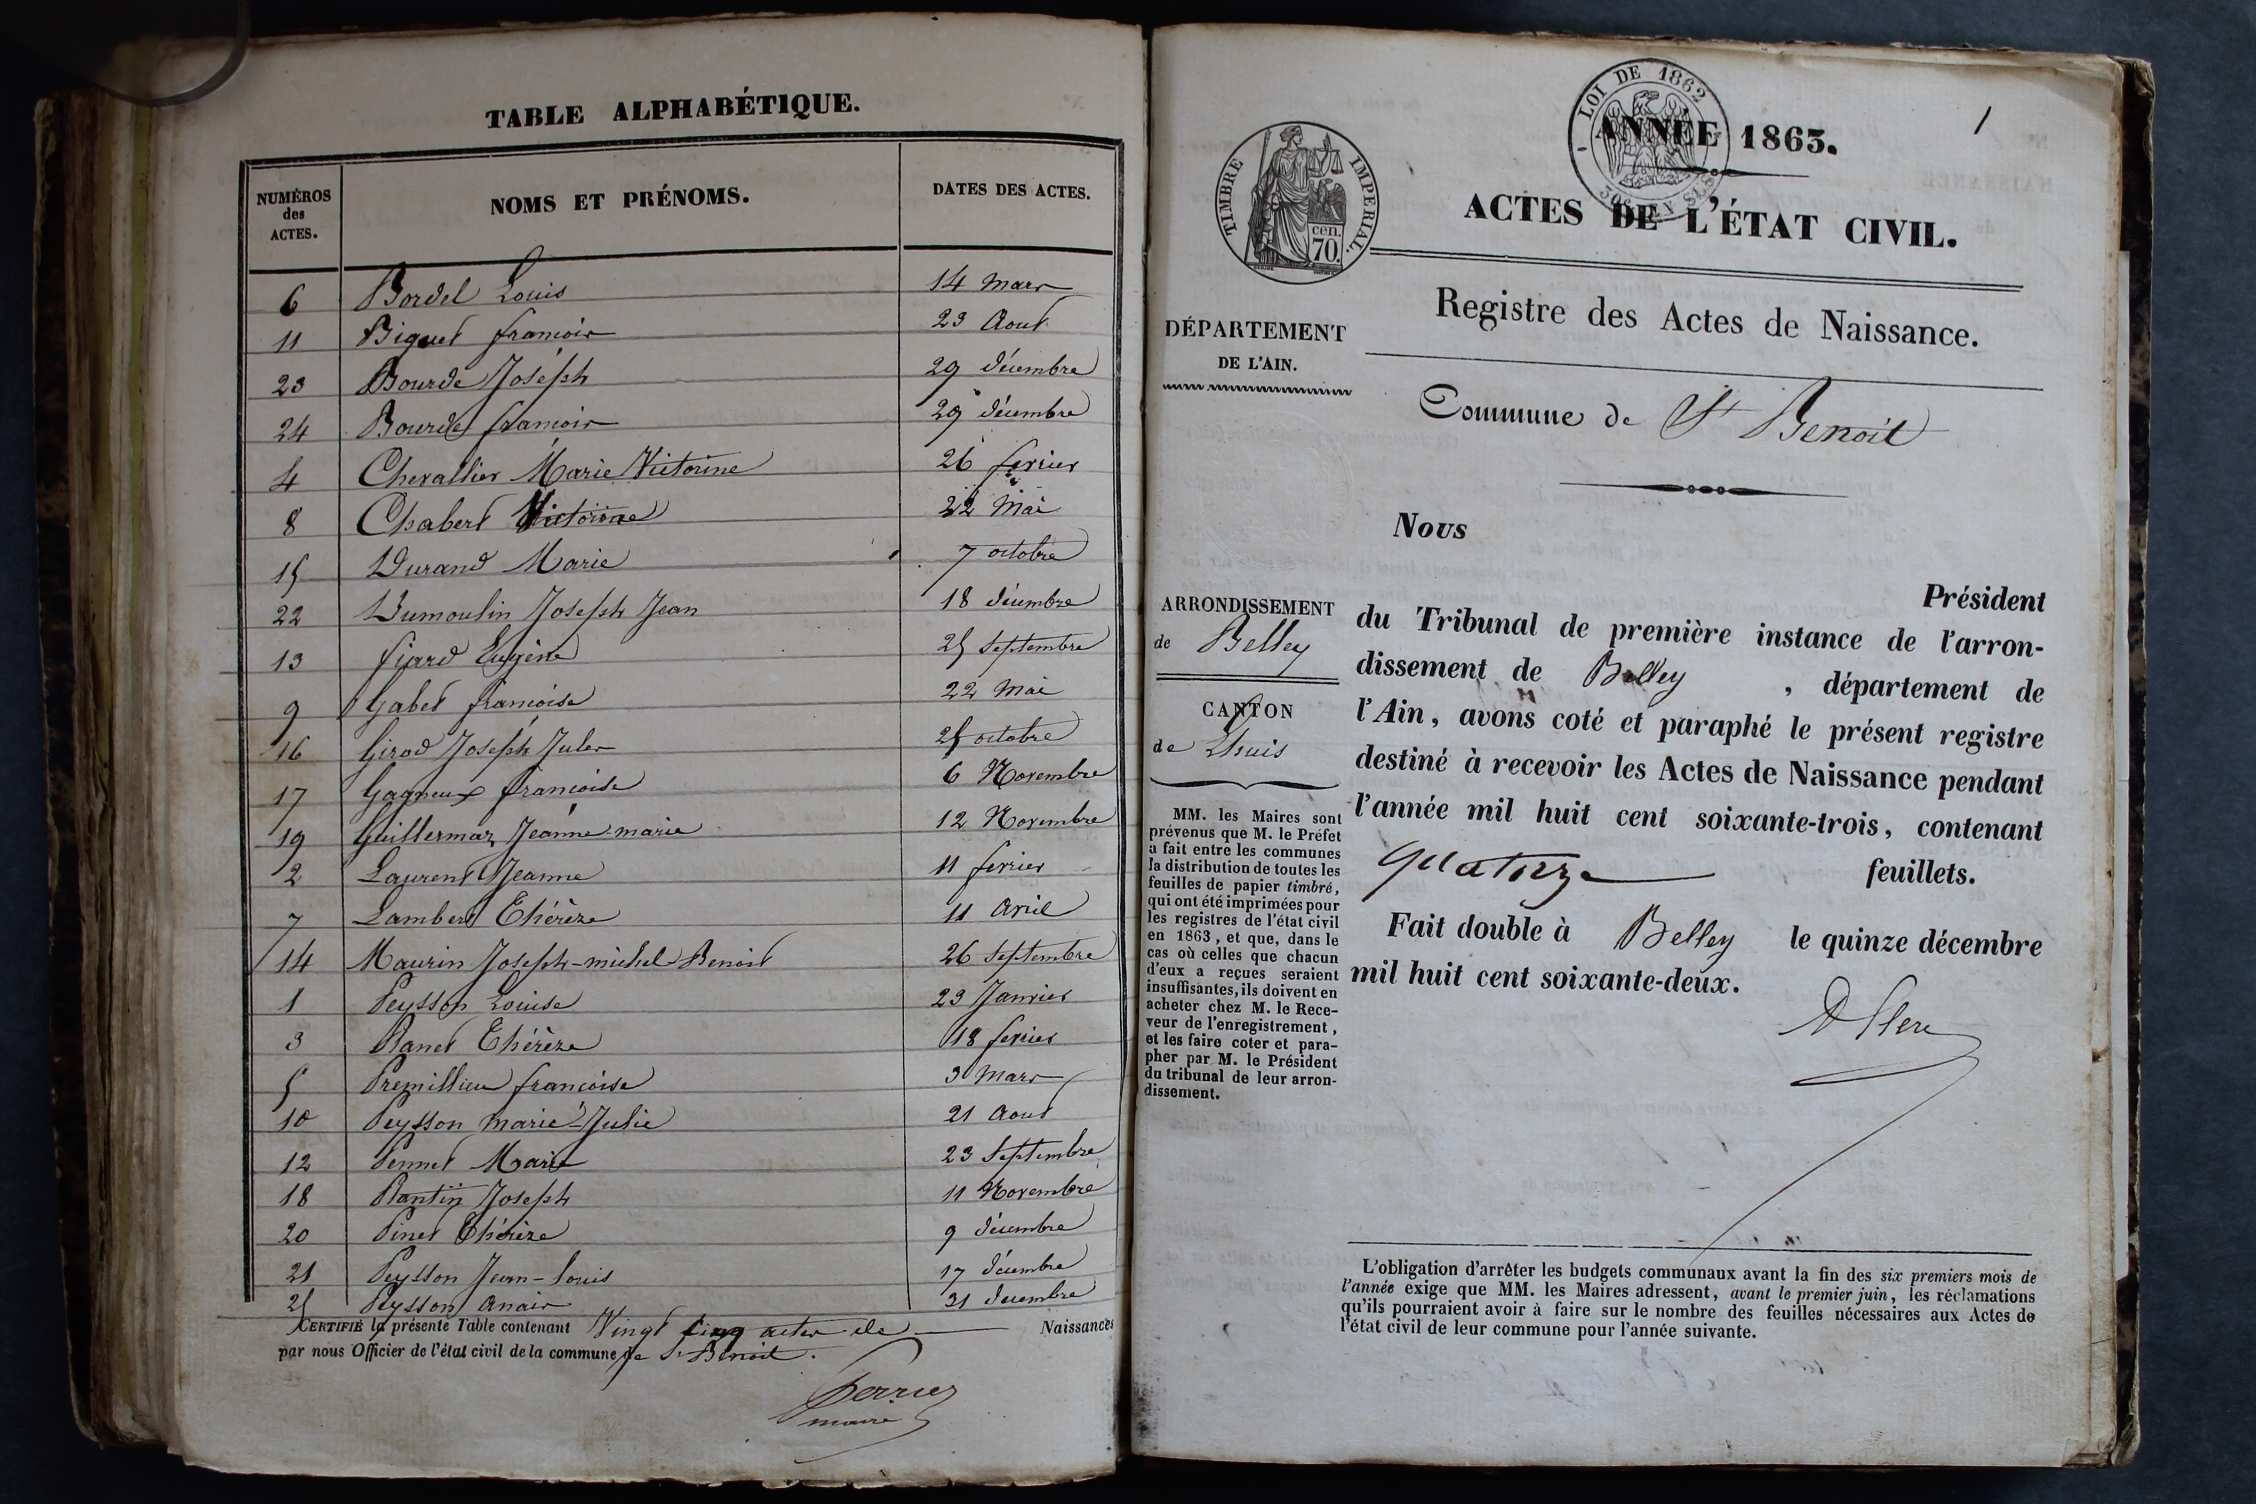 TABLE ALPHABÉTIQUE.
NUMÉROS des ACTES. NOMS ET PRÉNOMS. DATES DES ACTES.
6 Bordel Louis 14 Mars
11 Biguet francois 23 Aout
23 Bourde Joséph 29 décembre
24 Bourde francois 29 décembre
4 Chevallier Marie Victorine 26 fevrier
8 Chabert Victorine 22 Mai
15 Durand Marie 7 octobre
22 Dumoulin Joseph Jean 18 décembre
13 fiard Eugène 25 Septembre
9 Gabet francoise 22 Mai
16 Girod Joséph Jules 25 octobre
17 Gagneux francoise 6 Novembre
19 Guillermaz Jeanne-marie 12 Novembre
2 Laurent Jeanne 11 fevrier
7 Lambert Thérèze 11 Avril
14 Maurin Joseph-michel-Benoit 26 Septembre
1 Peysson Louise 23 Janvier
3 Panet Thérèze 18 fevrier
5 Premillieu francoise 3 Mars
10 Peysson marie-Julie 21 Aout
12 Pennet Marie 23 Septembre
18 Plantin Joseph 11 Novembre
20 Pinet Thérèze 9 décembre
21 Peysson Jean-Louis 17 décembre
25 Peysson Anais 31 decembre
CERTIFIÉ la présente Table contenant Vingt cinq actes de Naissances
par nous Officier de l'état civil de la commune de St Benoit.
Perrier
maire
LOI DE 1862
1
ANNÉE 1863.
TIMBRE IMPÉRIAL.
cen.
70.
ACTES DE L'ÉTAT CIVIL.
Registre des Actes de Naissance.
DÉPARTEMENT
DE L'AIN.
Commune de St Benoit
Nous
Président
ARRONDISSEMENT
de Belley
CANTON
de Lhuis
du Tribunal de première instance de l'arron-
dissement de Belley , département de
l'Ain, avons coté et paraphé le présent registre
destiné à recevoir les Actes de Naissance pendant
l'année mil huit cent soixante-trois, contenant
quatorze feuillets.
Fait double à Belley le quinze décembre
mil huit cent soixante-deux.
MM. les Maires sont
prévenus que M. le Préfet
a fait entre les communes
la distribution de toutes les
feuilles de papier timbré,
qui ont été imprimées pour
les registres de l'état civil
en 1863, et que, dans le
cas où celles que chacun
d'eux a reçues seraient
insuffisantes, ils doivent en
acheter chez M. le Rece-
veur de l'enregistrement,
et les faire coter et para-
pher par M. le Président
du tribunal de leur arron-
dissement.
L'obligation d'arrêter les budgets communaux avant la fin des six premiers mois de
l'année exige que MM. les Maires adressent, avant le premier juin, les réclamations
qu'ils pourraient avoir à faire sur le nombre des feuilles nécessaires aux Actes de
l'état civil de leur commune pour l'année suivante.